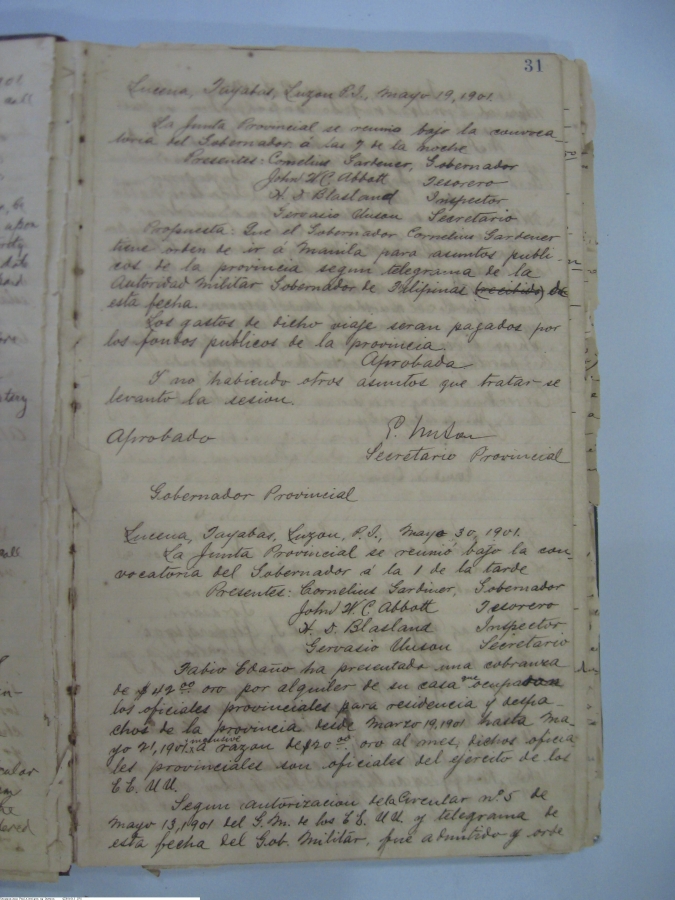 31
Lucena, Tayabas, Luzon P.I., Mayo 19, 1901.
La Junta Provincial se reunio bajo la convoca-
toria del Gobernador á las 7 de la noche
Presentes: Cornelius Gardener, Gobernador
John W.C. Abbott Tesorero
H. D. Blasland Inspector
Gervasio Unson Secretario
Propuesta: Que el Gobernador Cornelius Gardener
tiene orden de ir á Manila para asuntos publi-
cos de la provincia segun telegrama de la
Autoridad Militar Gobernador de Filipinas (recibido) de
esta fecha.
Los gastos de dicho viaje seran pagados por
los fondos publicos de la provincia
Aprobada.
Y no habiendo otros asuntos que tratar se
levanto la sesion.
Aprobado
G. Unson
Secretario Provincial
Gobernador Provincial
Lucena, Tayabas, Luzon, P.I., Mayo 30, 1901.
La Junta Provincial se reunió bajo la con-
vocatoria del Gobernador á la 1 de la tarde
Presentes: Cornelius Gardiner, Gobernador
John W.C. Abbott Tesorero
H. D. Blasland Inspector
Gervasio Unson Secretario
Fabio Edaño ha presentado una cobranza
de $42.00 oro por alquiler de su casa que ocupaban
los oficiales provinciales para residencia y despa-
chos de la provincia desde Marzo 19, 1901 hasta Ma-
yo 21, 1901 inclusive á razon de $20.00 oro al mes, dichos oficia
les provinciales son oficiales del ejercito de los
E E. U U.
Segun autorizacion de la Circular nº. 5 de
Mayo 13, 1901 del G. M. de los E E. U U. y telegrama de
esta fecha del Gob. Militar, fue admitido y orde